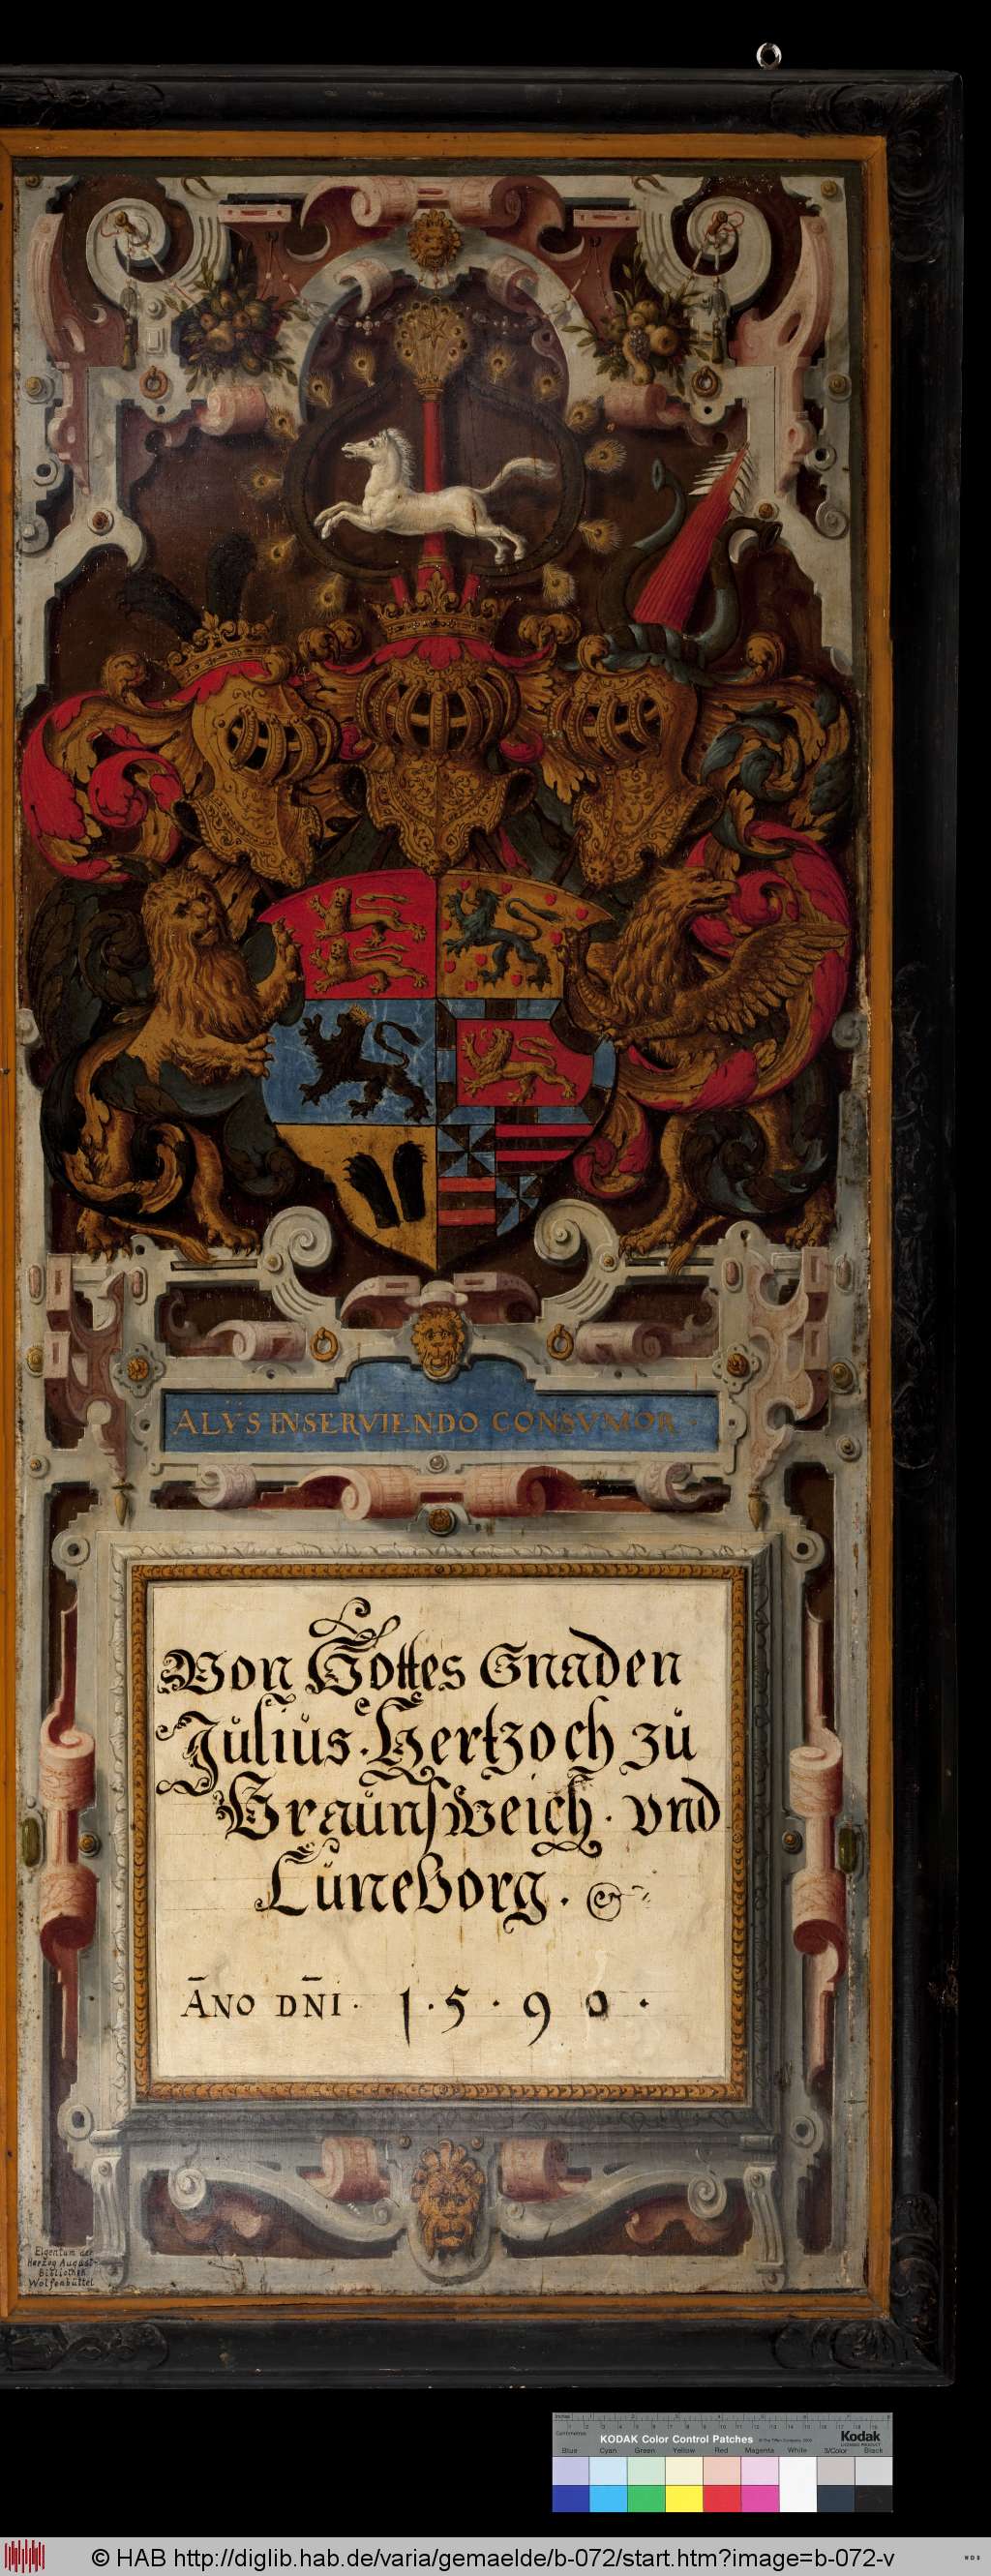 ALŸS INSERVIENDO CONSVMOR ·
Von Gottes Gnaden
Jůliůs · Hertzoch zů
Braůnsweich · vnd
Lüneborg · &
ĀNO DN̄I · 1 · 5 · 9 0 ·
Eigentum der
Herzog August-
Bibliothek
Wolfenbüttel
KODAK Color Control Patches
Kodak
Blue Cyan Green Yellow Red Magenta White 3/Color Black
© HAB http://diglib.hab.de/varia/gemaelde/b-072/start.htm?image=b-072-v